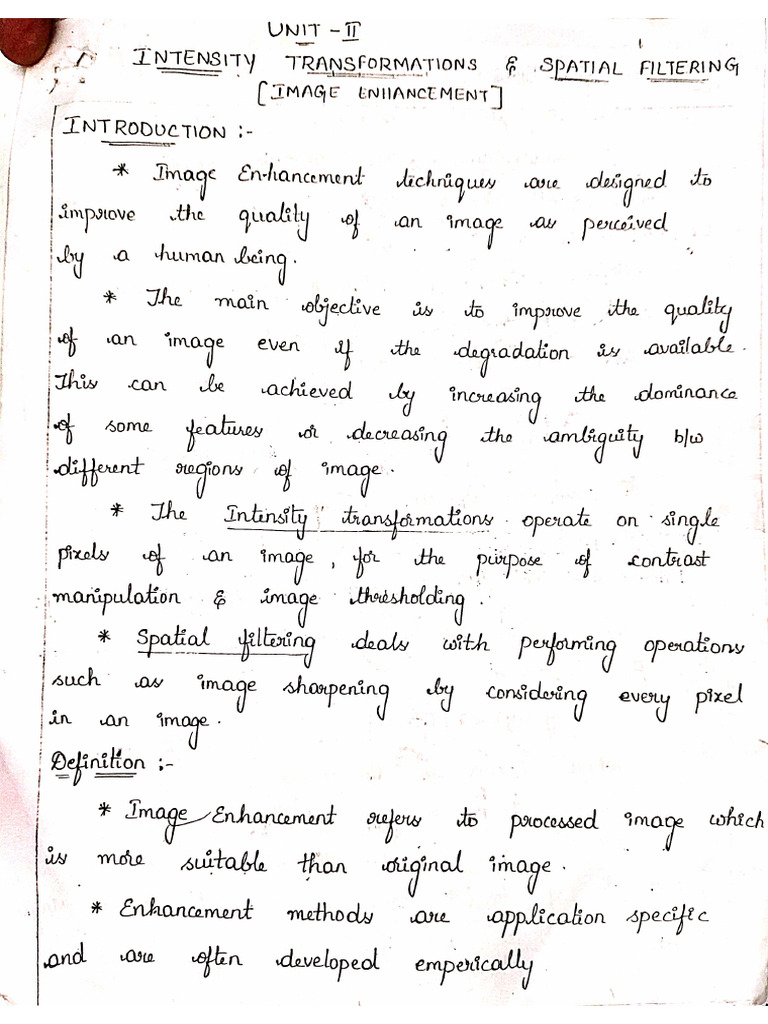 UNIT - II
INTENSITY TRANSFORMATIONS & SPATIAL FILTERING
[IMAGE ENHANCEMENT]
INTRODUCTION :-
* Image Enhancement techniques are designed to
improve the quality of an image as perceived
by a human being.
* The main objective is to improve the quality
of an image even if the degradation is available.
This can be achieved by increasing the dominance
of some features or decreasing the ambiguity b/w
different regions of image.
* The Intensity transformations operate on single
pixels of an image, for the purpose of contrast
manipulation & image thresholding.
* Spatial filtering deals with performing operations
such as image sharpening by considering every pixel
in an image.
Definition :-
* Image Enhancement refers to processed image which
is more suitable than original image.
* Enhancement methods are application specific
and are often developed emperically